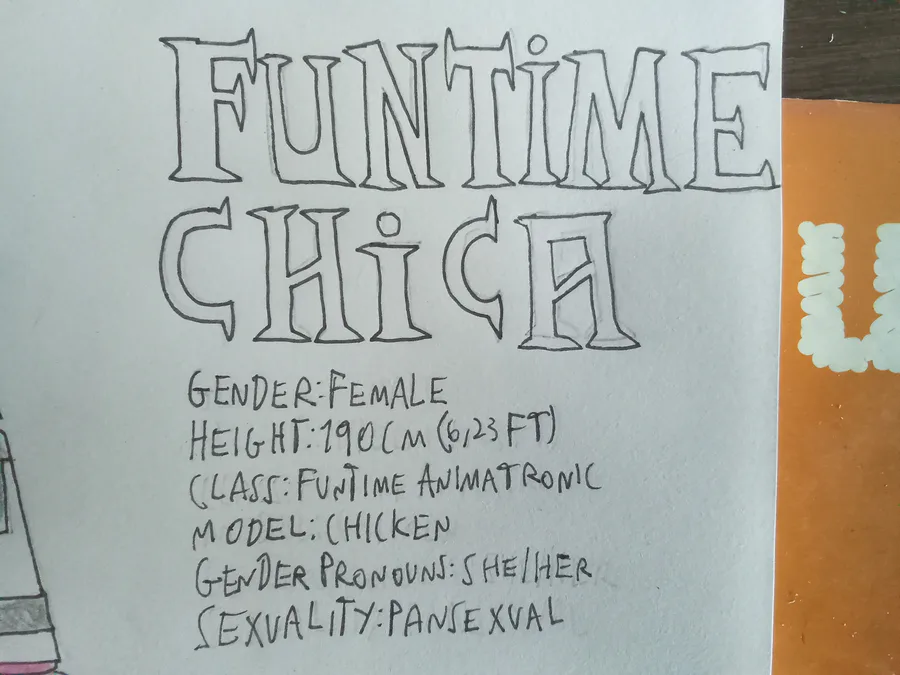 FUNTiME
CHiCA
GENDER:FEMALE
HEIGHT:190CM (6,23 FT)
CLASS: FUNTIME ANIMATRONIC
MODEL: CHICKEN
GENDER PRONOUNS: SHE/HER
SEXUALITY:PANSEXUAL